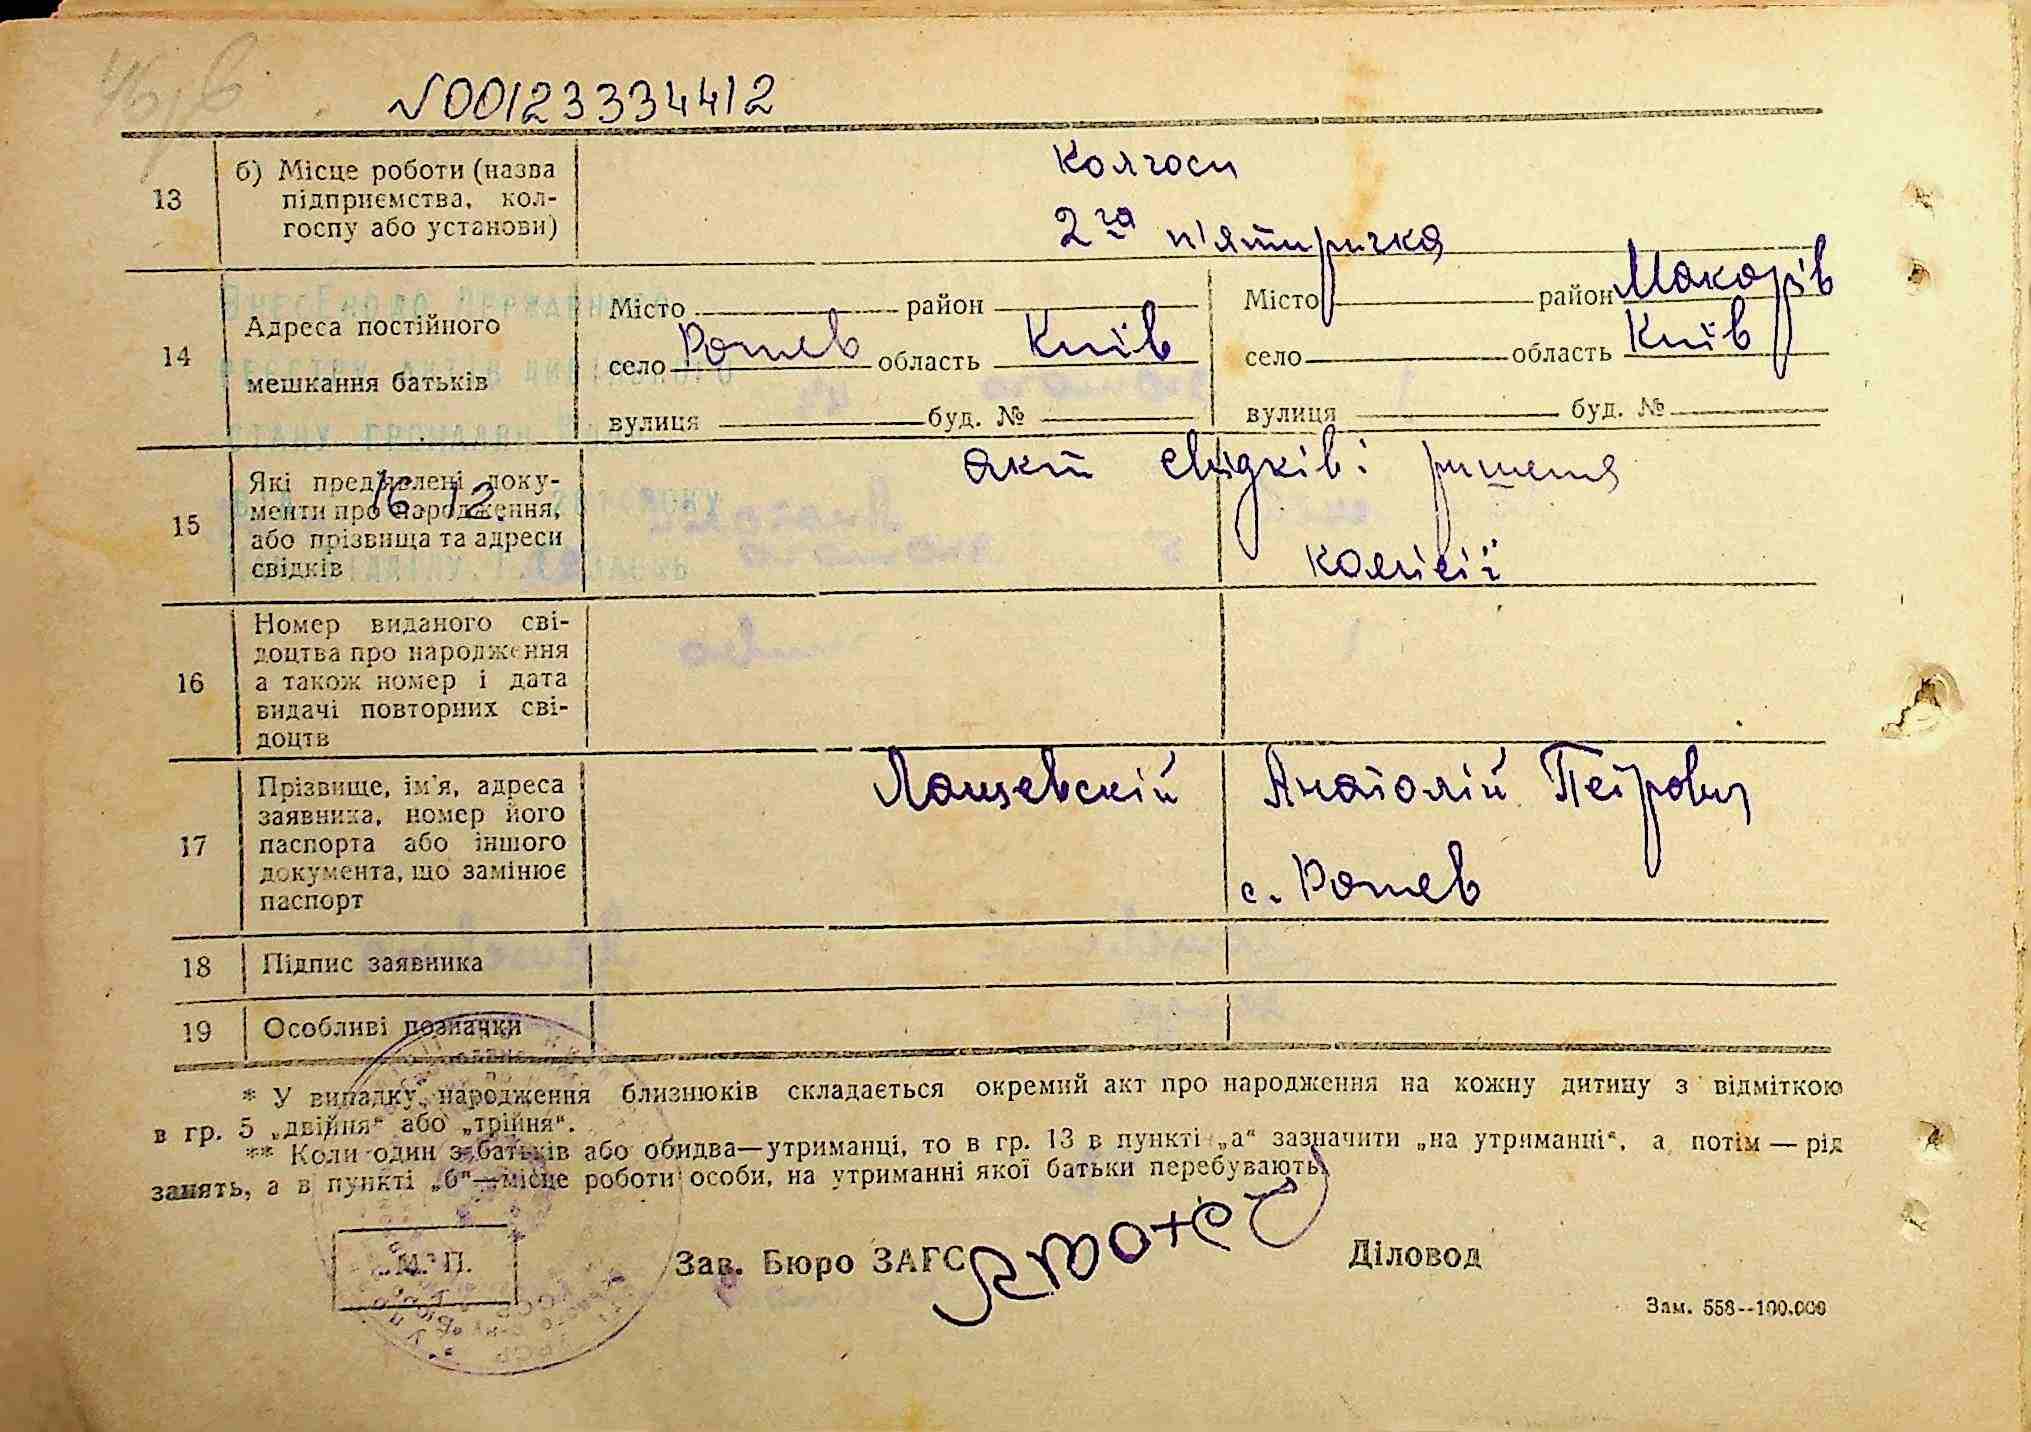 N00123334412
13
б) Місце роботи (назва
підприємства, кол-
госпу або установи)
Колгосп
2га п'ятирічка
14
Адреса постійного
мешкання батьків
Місто район
село Рожев область Київ
вулиця буд. №
Місто район Макарів
село область Київ
вулиця буд. №
15
Які пред'явлені доку-
менти про народження,
або прізвища та адреси
свідків
16.12.
акт свідків і ришення
комісії
16
Номер виданого сві-
доцтва про народження
а також номер і дата
видачі повторних сві-
доцтв
17
Прізвище, ім'я, адреса
заявника, номер його
паспорта або іншого
документа, що замінює
паспорт
Анатолій Петрович
с. Рожев
18
Підпис заявника
19
Особливі позначки
* У випадку народження близнюків складається окремий акт про народження на кожну дитину з відміткою
в гр. 5 „двійня“ або „трійня“.
** Коли один з батьків або обидва—утриманці, то в гр. 13 в пункті „а“ зазначити „на утриманні“, а потім — рід
занять, а в пункті „б“—місце роботи особи, на утриманні якої батьки перебувають.
М. П.
Зав. Бюро ЗАГС
Діловод
Зам. 558--100.000